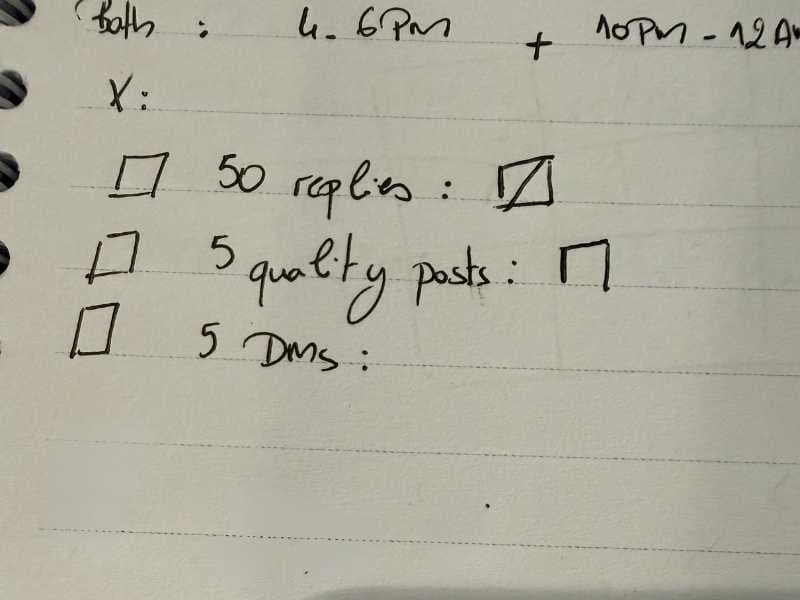 Both : 4-6PM + 10PM-12AM
X:
☐ 50 replies : ☑
☐ 5 quality posts : ☐
☐ 5 DMs :